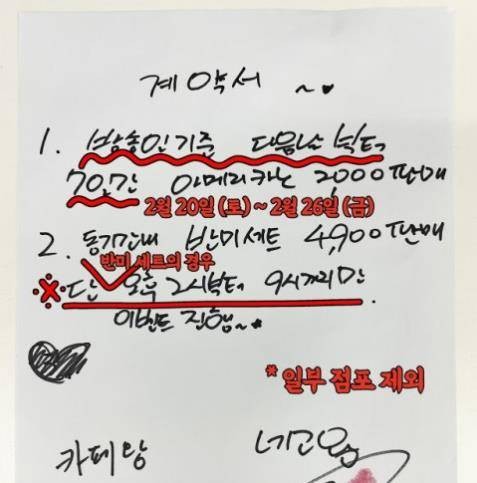 계약서 ~♥
1. 방송인기준 다음날 부터
7일간 아메리카노 2,000 판매
2월 20일 (토) ~ 2월 26일 (금)
2. 동기간내 반미세트 4,900 판매
반미 세트의 경우
※ 단 오후 2시부터 9시까지만
이벤트 진행~♥
* 일부 점포 제외
카페왕 네고왕